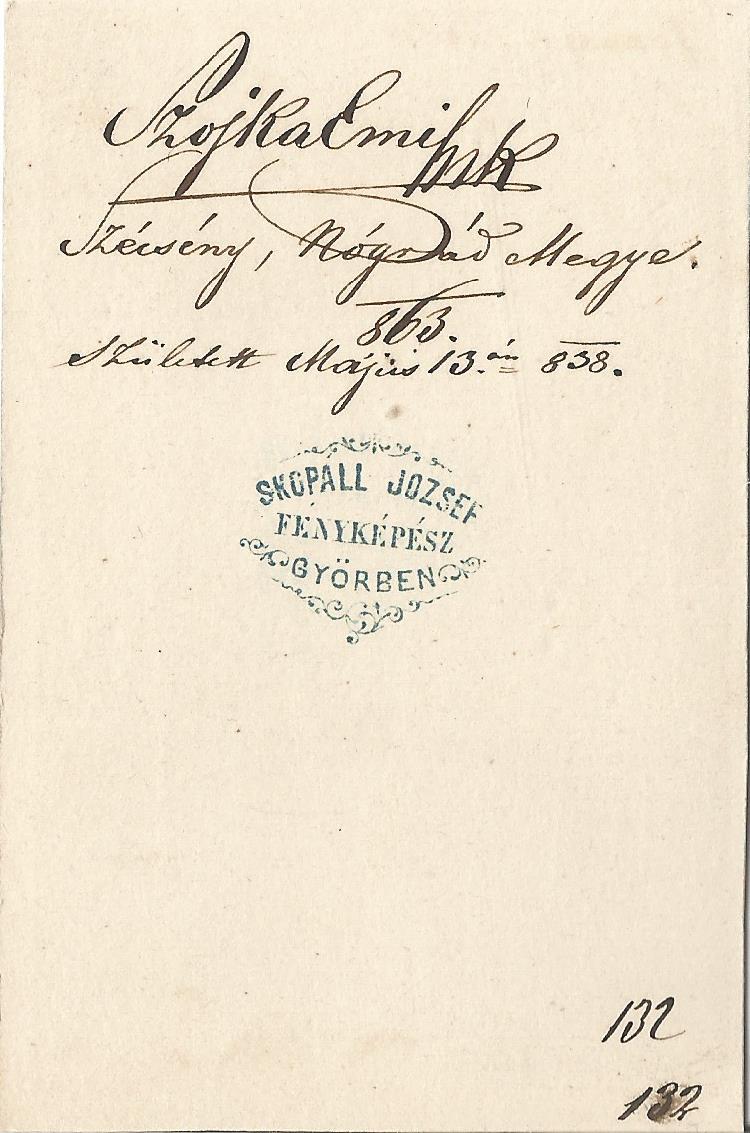 Szojka Emil mk
Szécsény, Nógrád Megye.
863.
Született Május 13.án 838.
SKOPALL JOZSEF
FÉNYKÉPÉSZ
GYÖRBEN
132
132